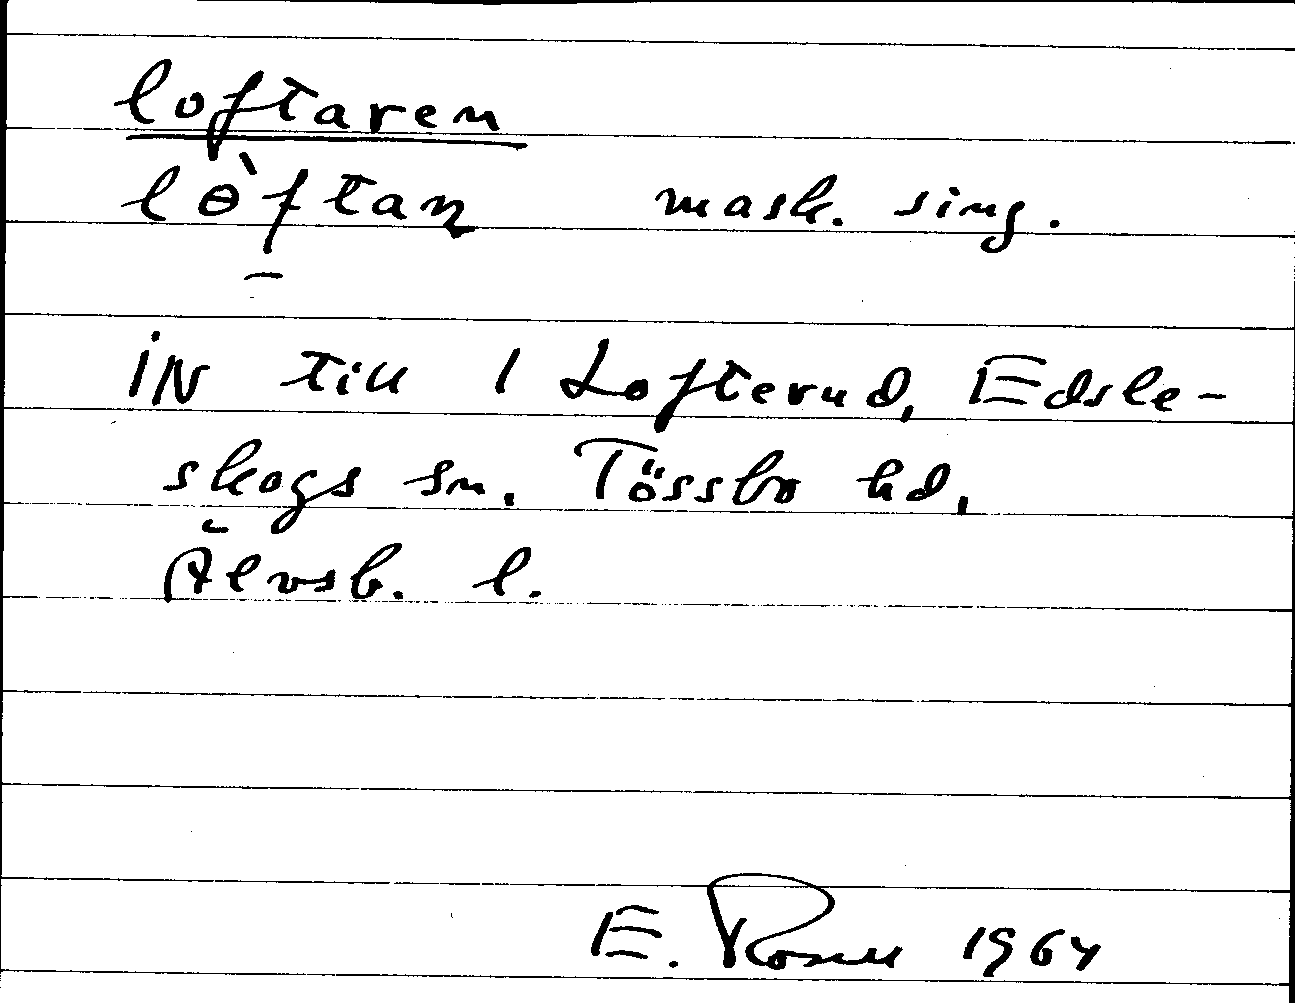 loftaren
lɵ̀f̱taɳ mask. sing.
IN till 1 Lofterud, Edsle-
skogs sn. Tössbo hd,
Älvsb. l.
E. Rosell 1964